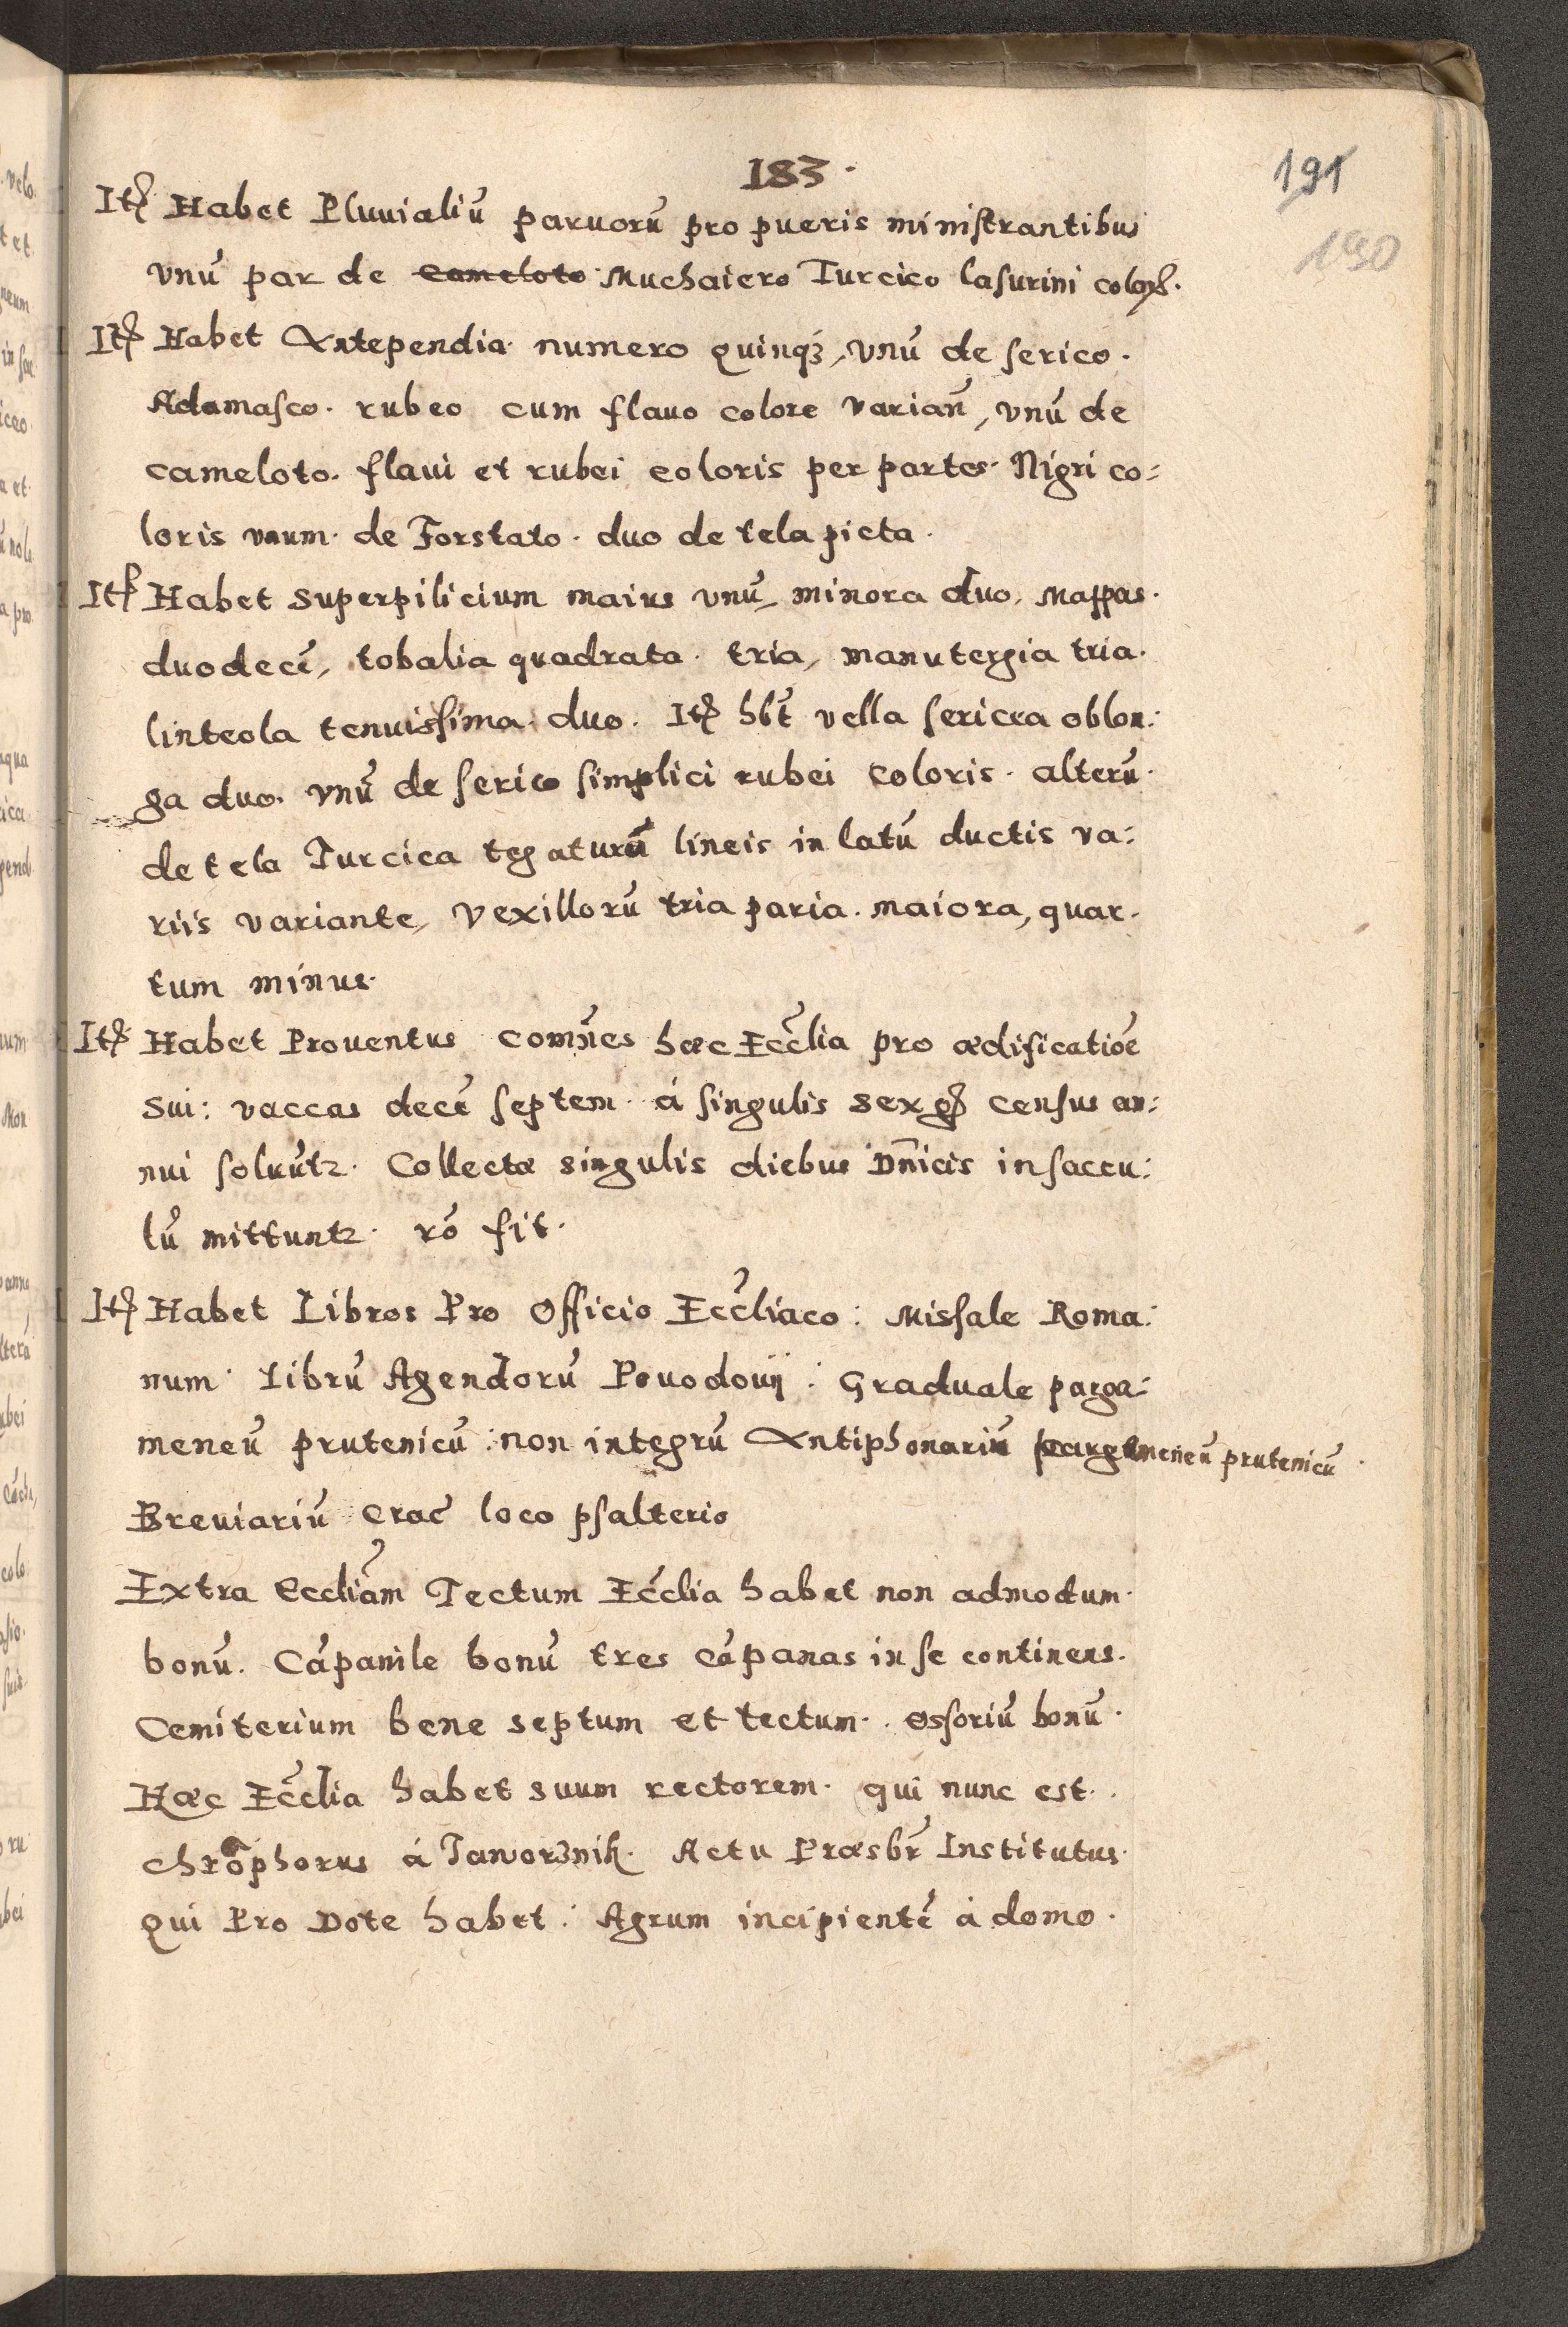 183.
191
190
Itē Habet Pluuialiū paruorū pro pueris ministrantibus
vnū par de Cameloto Muchaiero Turcico lasurini colorē.
Itē Habet Antependia numero quinqʒ, vnū de serico.
Adamasco. rubeo cum flauo colore varianī, vnū de
cameloto. flaui et rubei coloris per partes. Nigri co:
loris vnum. de Forstato. duo de tela picta.
Itē Habet superpilicium maius vnū, minora duo, Mappas.
duodecī, tobalia quadrata. tria, manutergia tria.
linteola tenuissima. duo. Itē hbt̄ vella sericea oblon:
ga duo. vnū de serico simplici rubei coloris. alterū.
de tela Turcica tegaturū lineis in latū ductis va:
riis variante, vexillorū tria paria. maiora, quar.
tum minus.
Itē Habet Prouentus comn̄es hæc Eccl̄ia pro ædificatiōe
sui: vaccas decē septem. á singulis sex gr̄ census an:
nui soluūtr. Collectæ singulis diebus Dn̄icis in saccu:
lū mittuntr. rō fit.
Itē Habet Libros Pro Officio Eccl̄iaco: Missale Roma:
num. Librū Agendorū Pouodouij: Graduale parga:
meneū prutenicū: non integrū Antiphonariū pargameneū prutenicū.
Breuiariū Crac̄ loco psalterio
Extra Eccliām Tectum Eccl̄ia habet non admodum.
bonū. Cāpanile bonū tres cāpanas in se continens.
Cemiterium bene septum et tectum. Ossoriū bonū.
Hæc Eccl̄ia habet suum rectorem. qui nunc est.
chrōphorus á Jaworʒnik. Actu Præsbr̄ Institutus.
qui Pro Dote habet: Agrum incipientē à domo.